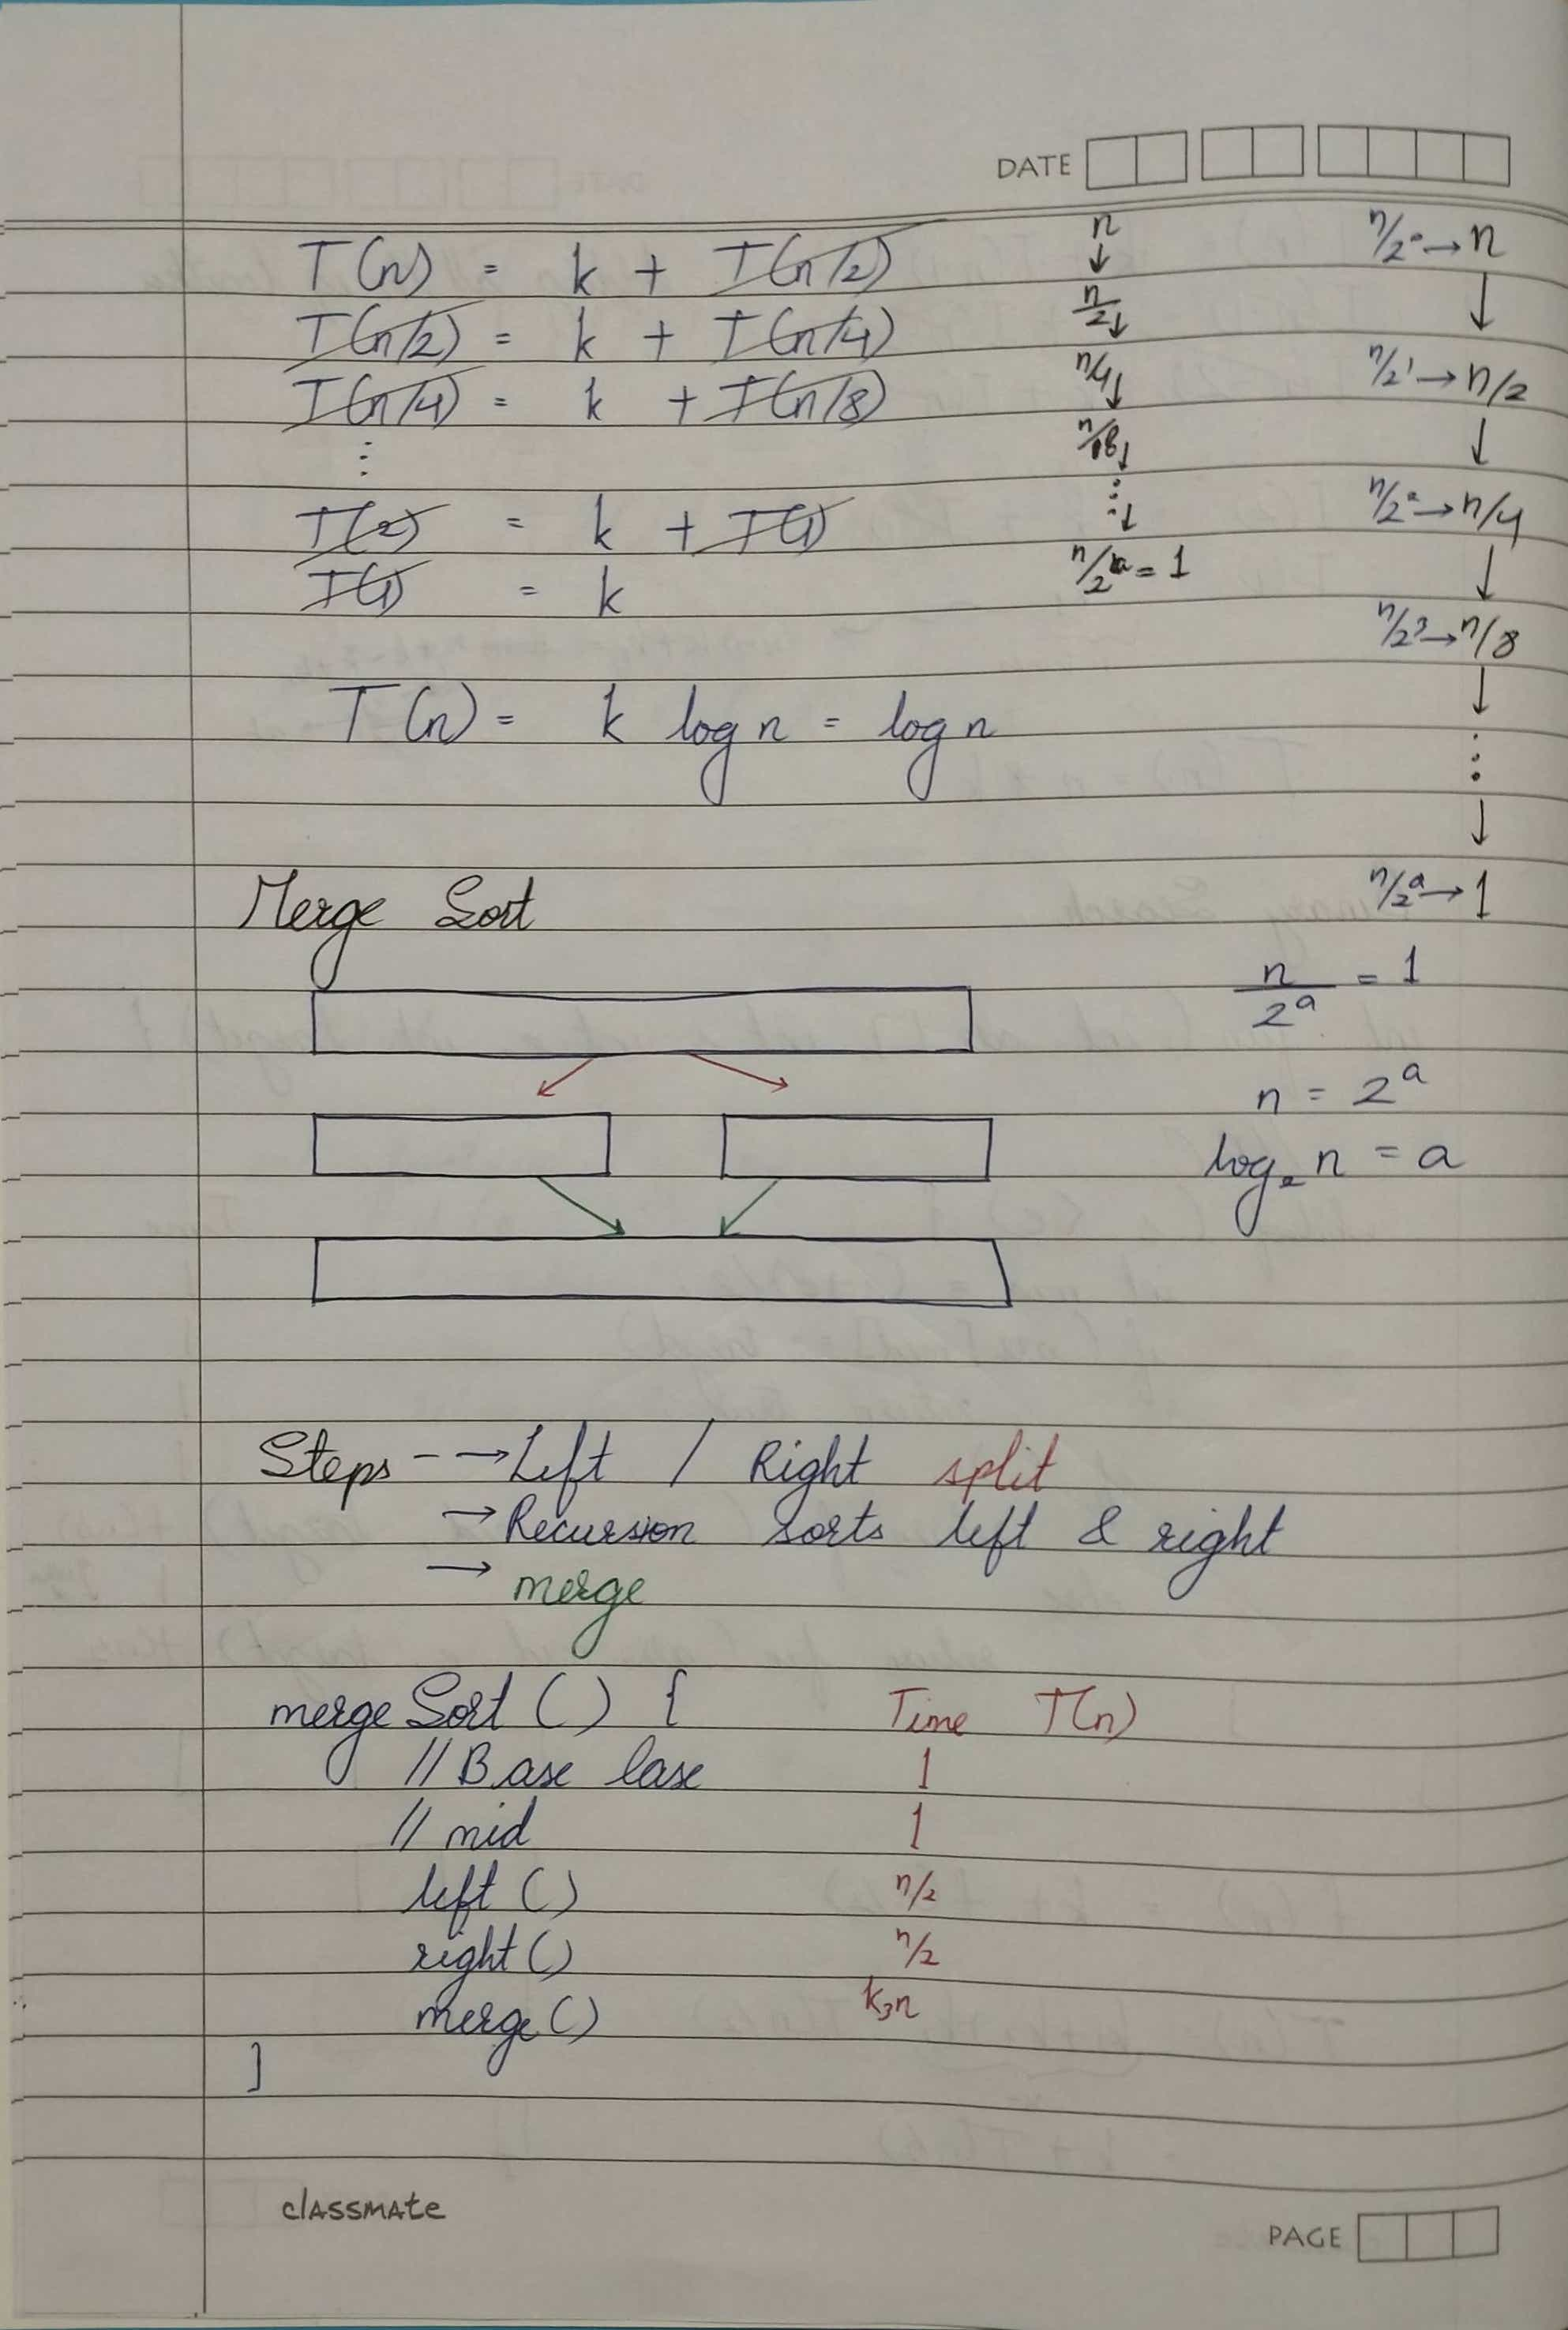 DATE
T(n) = k + T(n/2)
T(n/2) = k + T(n/4)
T(n/4) = k + T(n/8)
⋮
T(2) = k + T(1)
T(1) = k
T(n) = k log n = log n
n
↓
n/2 ↓
n/4 ↓
n/8 ↓
⋮ ↓
n/2ᵃ = 1
n/2⁰ → n
↓
n/2¹ → n/2
↓
n/2² → n/4
↓
n/2³ → n/8
↓
⋮
↓
n/2ᵃ → 1
n/2ᵃ = 1
n = 2ᵃ
log₂ n = a
Merge Sort
Steps - → Left / Right split
→ Recursion sorts left & right
→ merge
merge Sort ( ) { Time T(n)
// Base Case 1
// mid 1
left ( ) n/2
right ( ) n/2
merge ( ) k₃n
}
classmate
PAGE